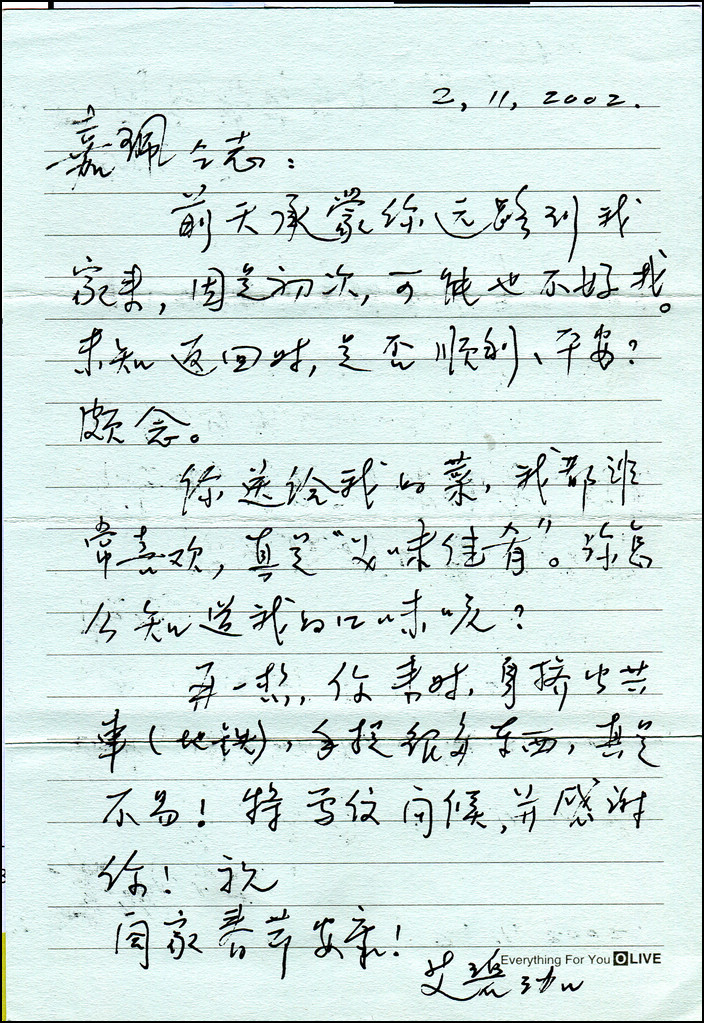 2, 11, 2002.
嘉珮同志:
前天承蒙你远路到我
家来,因是初次,可能也不好找。
未知返回时,是否顺利、平安?
颇念。
你送给我的菜,我都非
常喜欢,真是“美味佳肴”。你怎
么知道我的口味呢?
再一想,你来时,身挤公共
车(地铁),手提很多东西,真是
不易!特写信问候,并感谢
你!祝
阖家春节安康!
Everything For You OLIVE
艾碧